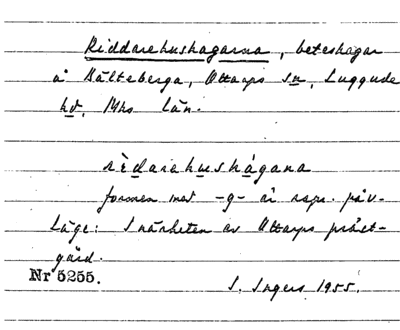 Riddarehushagarna, beteshagar
å Hälteberga, Ottarps sn, Luggude
hd, Mhs län.
rèdarehushágana
formen med -g- är repr. påv.
Läge: I närheten av Ottarps präst-
gård.
Nr 5255.
I. Ingers 1955.